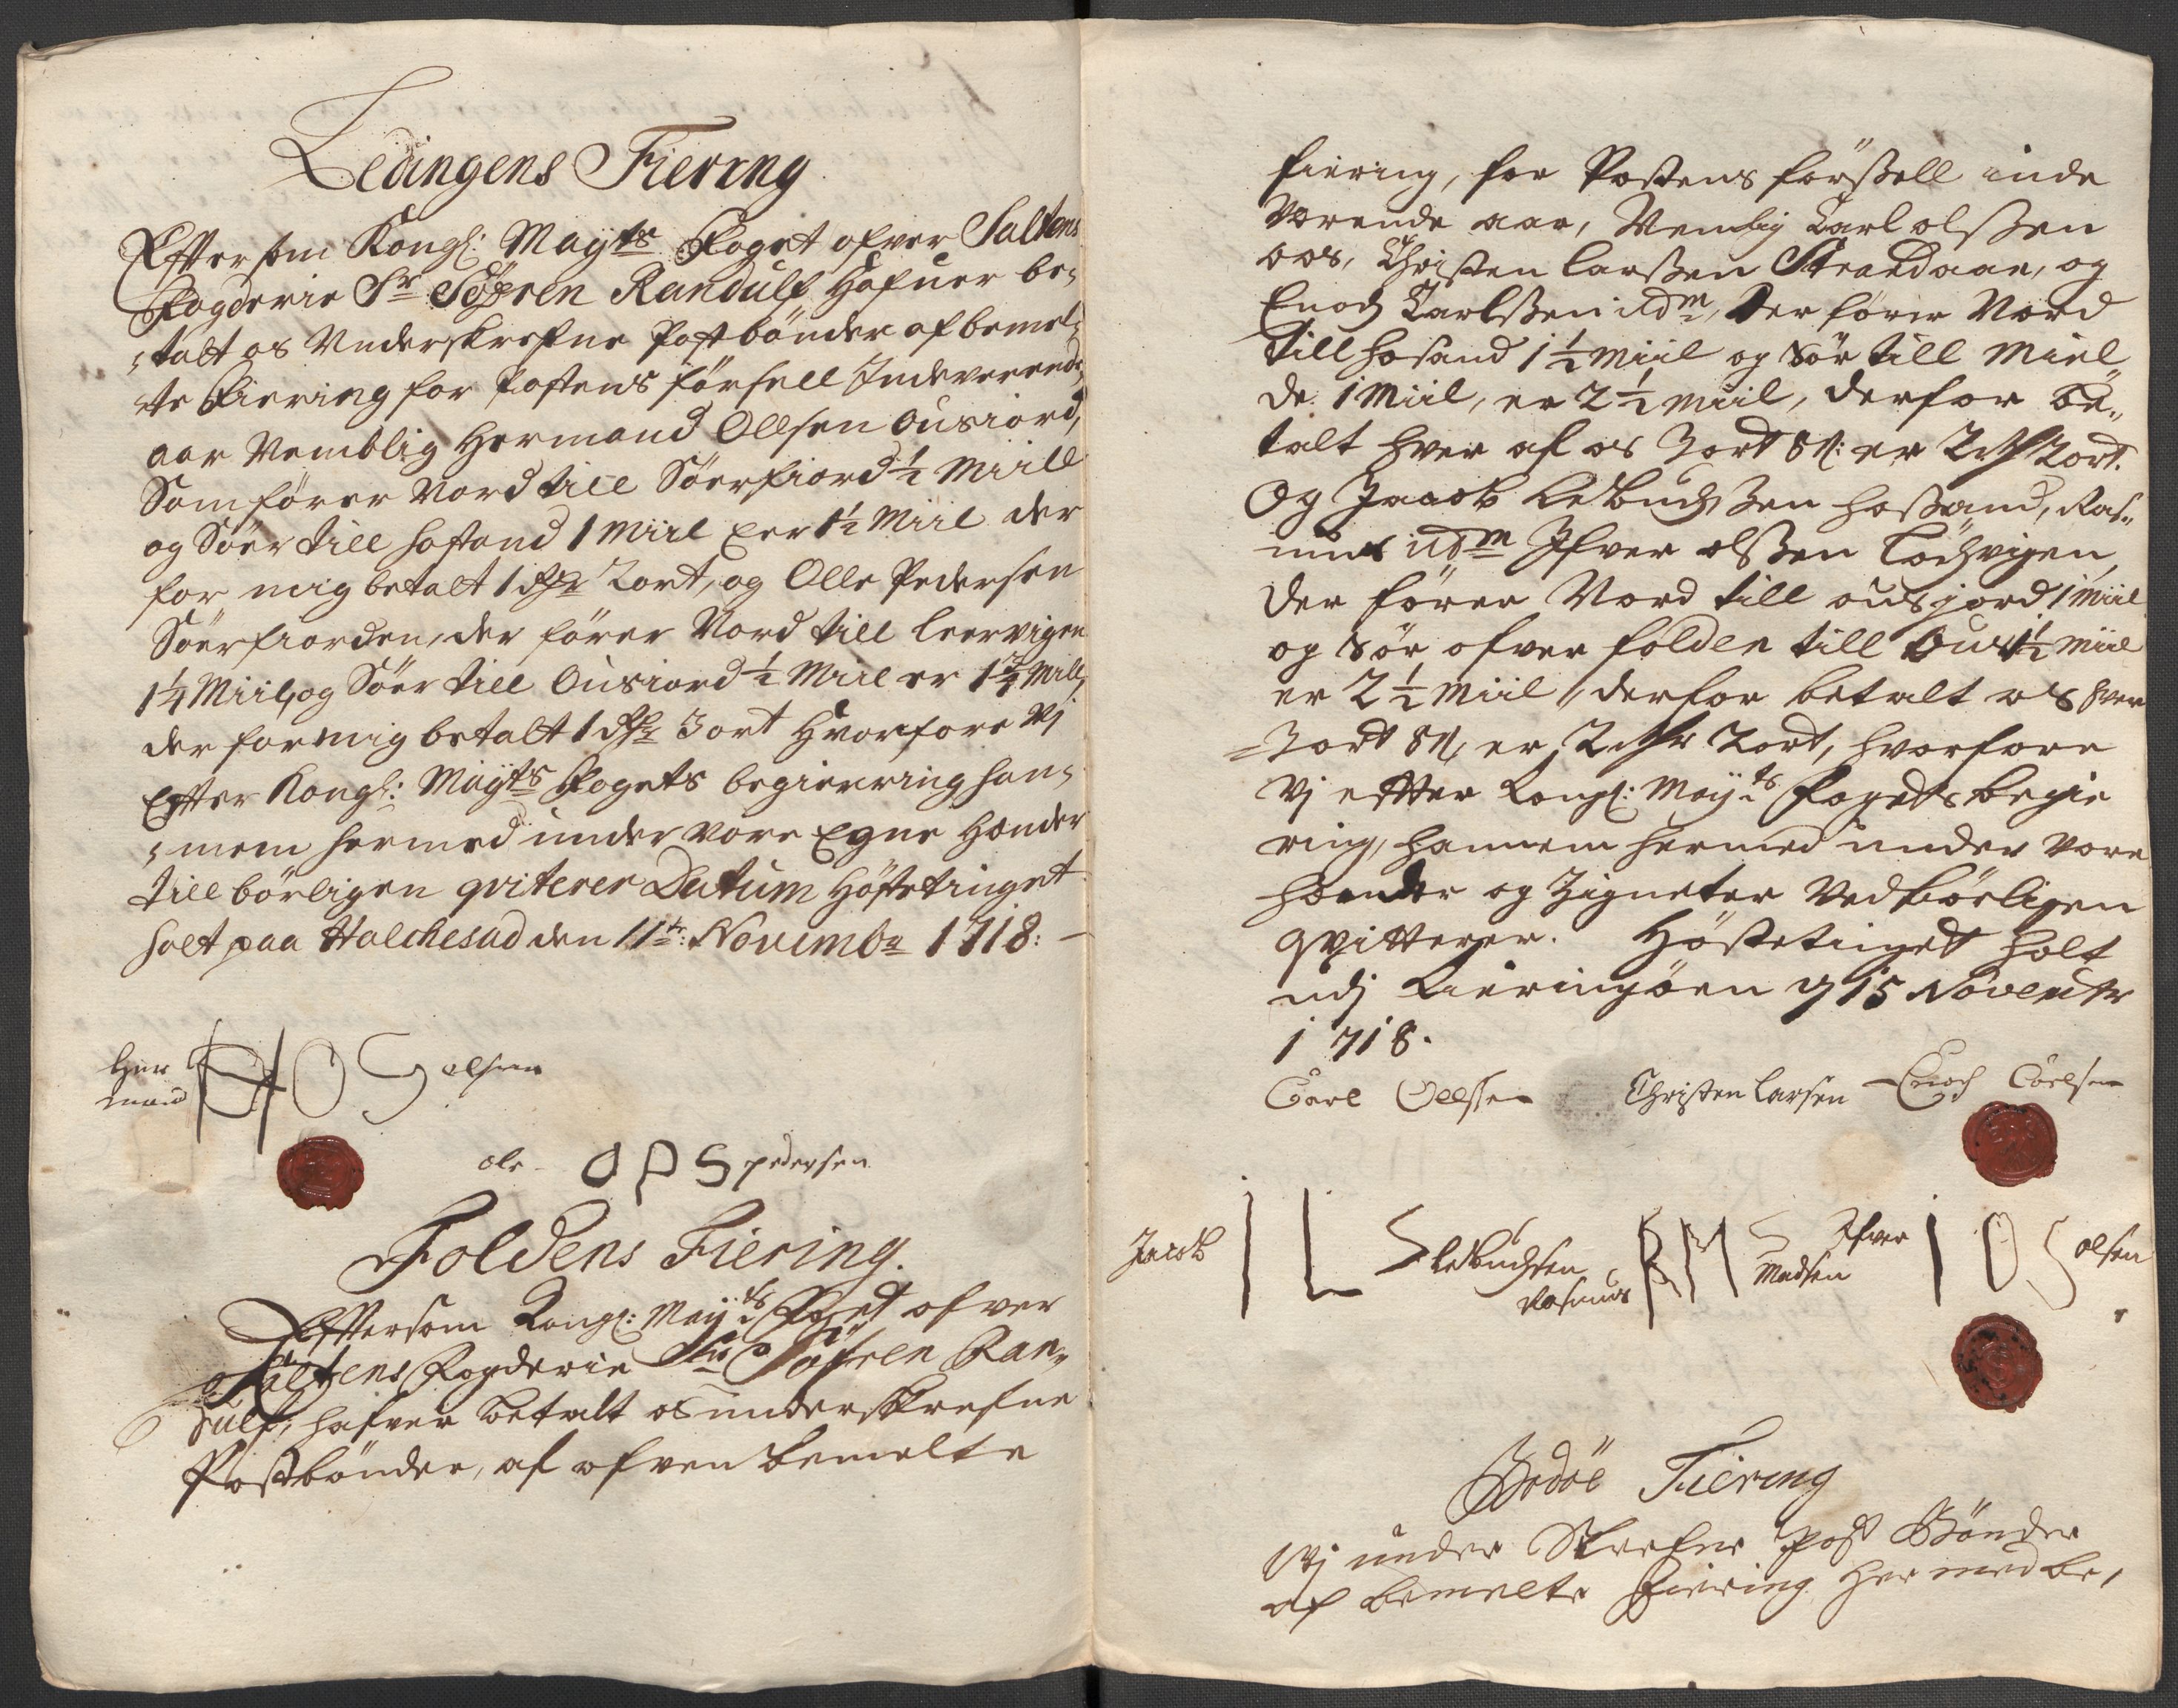 Ledingens Fiering
Efftersom Kongl: Mayts Foget ofver Saltens
Fogderie Sr Søfren Randulf Hafuer be-
talt os Underskrefne Postbönder af bemel-
te Fiering for Postens förssell Indeverende
aar Nemblig Hermand Ollsen Ousiord,
Som förer Nord till Söerfiord ½ Miill
og Söer till hostand 1 Miil Eer 1½ Miil der
for mig betalt 1 Rdr 2ort, og Olle Pedersen
Söerfiorden, der förer Nord till leervigen
1¼ Miil, og Söer till Ousiord ½ Miil er 1¾ Mill,
der for mig betalt 1 Rdr 3 ort Hvorfore Vj
Effter Kongl: Mayts Fogets begierring han-
nem hermed under vore Egne Hænder
till börligen qviterer Datum Höstetinget
holt paa Halchesad den 11te: Novembr 1718:
Her
mand HOS olsen
ole OPS pedersen
Foldens Fiering.
Efftersom Kongl: Mayts Foget ofver
Saltens Fogderie Sr Søfren Ran-
dulf, hafver betalt os underskrefne
Postbönder, af ofven bemelte
fiering, for Postens förssell inde
Værende aar, Nemlig Carl olssen
oos, Christen larssen Strandaae, og
Enoch Carlssen itdm, der förer Nord
till hosand 1½ Miil og Sör till Miel
de 1 Miil, er 2½ miil, derfor be-
talt hver af os 3ort 8s: er 2 Rdr 2ort.
Og Jacob lebuchssen hossand, Ras-
mus itdm Ifver olssen Lochvigen,
der förer Nord till ousjord 1 Miil
og Sör ofver folden till Ous 1½ Miil
er 2½ Miil, derfor betalt os hver
3ort 8s, er, 2 Rdr 2ort, hvorfore
Vj effter Kongl: Mayts Fogets begie
ring, hannem hermed under vore
hænder og Zigneter Vedbörligen
qvitterer. Höstetinget holt
udj Kieringöen d 15 Novembr
1718.
Carl Ollssen Christen Larsen Enoch Carlsen
Jacob ILS lebuchsen Rasmus RMS Madsen Ifver IOS olsen
Bodöe Fiering
Vj under Skrefne Post Bönder
af bemelte Fiering her med be,